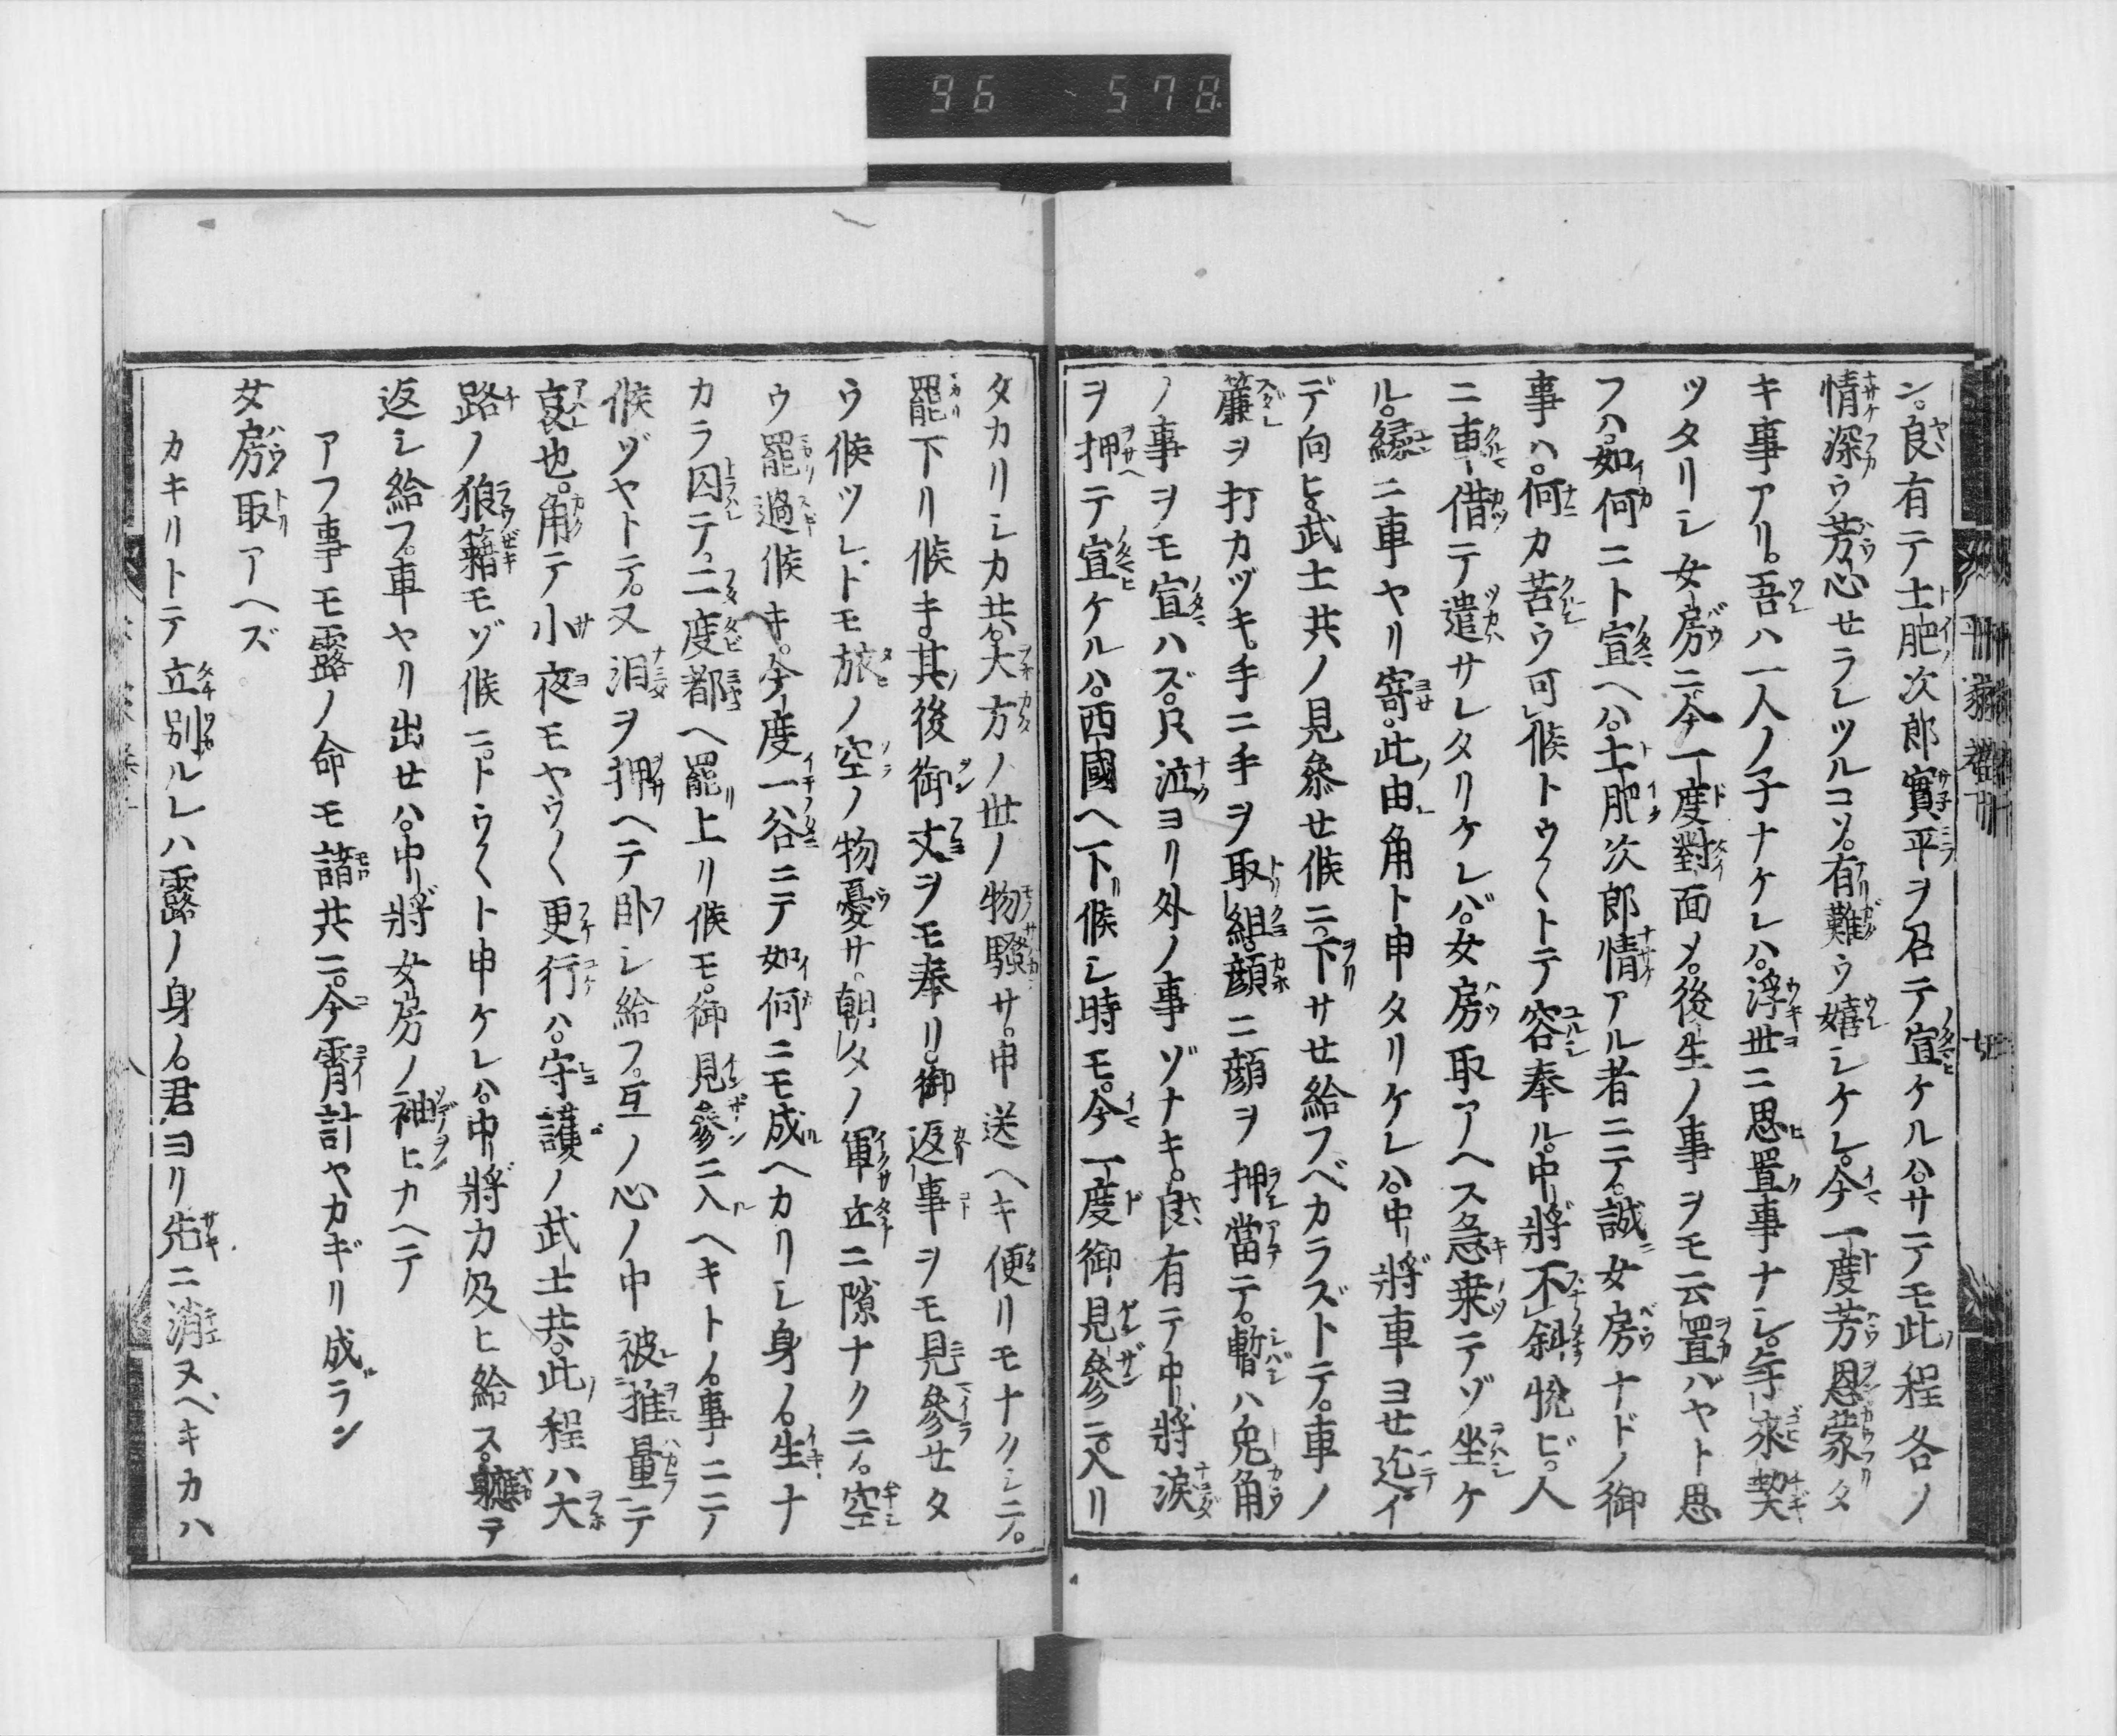 96 578
ン。良有テ土肥次郎實平ヲ召テ宣ケルハ。サテモ此程各ノ
情深ウ芳心セラレツルコソ。有難ウ嬉シケレ。今一度芳恩蒙タ
キ事アリ。吾ハ一人ノ子ナケレハ。浮世ニ思置事ナシ。年來契
ツタリシ女房ニ今一度對面メ。後生ノ事ヲモ云置バヤト思
フハ。如何ニト宣ヘハ。土肥次郎情アル者ニテ。誠女房ナドノ御
事ハ。何カ苦ウ可候トウ〳〵トテ容奉ル。中將不斜悅ビ。人
ニ車借テ遣サレタリケレバ。女房取アヘス急乗テゾ坐ケ
ル。縁ニ車ヤリ寄。此由角ト申タリケレハ。中將車ヨセ迄イ
デ向ヒ。武士共ノ見參セ候ニ。下サセ給フベカラズトテ。車ノ
簾ヲ打カヅキ。手ニ手ヲ取組。顔ニ顔ヲ押當テ。暫ハ兎角
ノ事ヲモ宣ハズ。只泣ヨリ外ノ事ゾナキ。良有テ中將淚
ヲ押テ宣ケルハ。西國ヘ下候シ時モ。今一度御見參ニ入リ
タカリシカ共。大方ノ世ノ物騒サ。申送ヘキ便リモナクシテ。
罷下リ候キ。其後御文ヲモ奉リ。御返事ヲモ見參セタ
ウ候ツレドモ旅ノ空ノ物憂サ。朝タノ軍立ニ隙ナクニテ。空
ウ罷過候キ。今度一谷ニテ如何ニモ成ヘカリシ身ノ。生ナ
カラ囚テ。二度都ヘ罷上リ候モ。御見參ニ入ヘキトノ事ニテ
候ゾヤトテ。又泪ヲ押ヘテ臥シ給フ。互ノ心ノ中被推量テ
哀也。角テ小夜モヤウ〳〵更行ハ。守護ノ武士共。此程ハ大
路ノ狼籍モゾ候ニ。トウ〳〵ト申ケレハ。中將力及ヒ給ス。軈テ
返シ給フ。車ヤリ出セハ。中將女房ノ袖ヒカヘテ
アフ事モ露ノ命モ諸共ニ。今霄計ヤカギリ成ラン
女房取アヘズ
カキリトテ立別ルレハ露ノ身ノ。君ヨリ先ニ消ヌヘキカハ